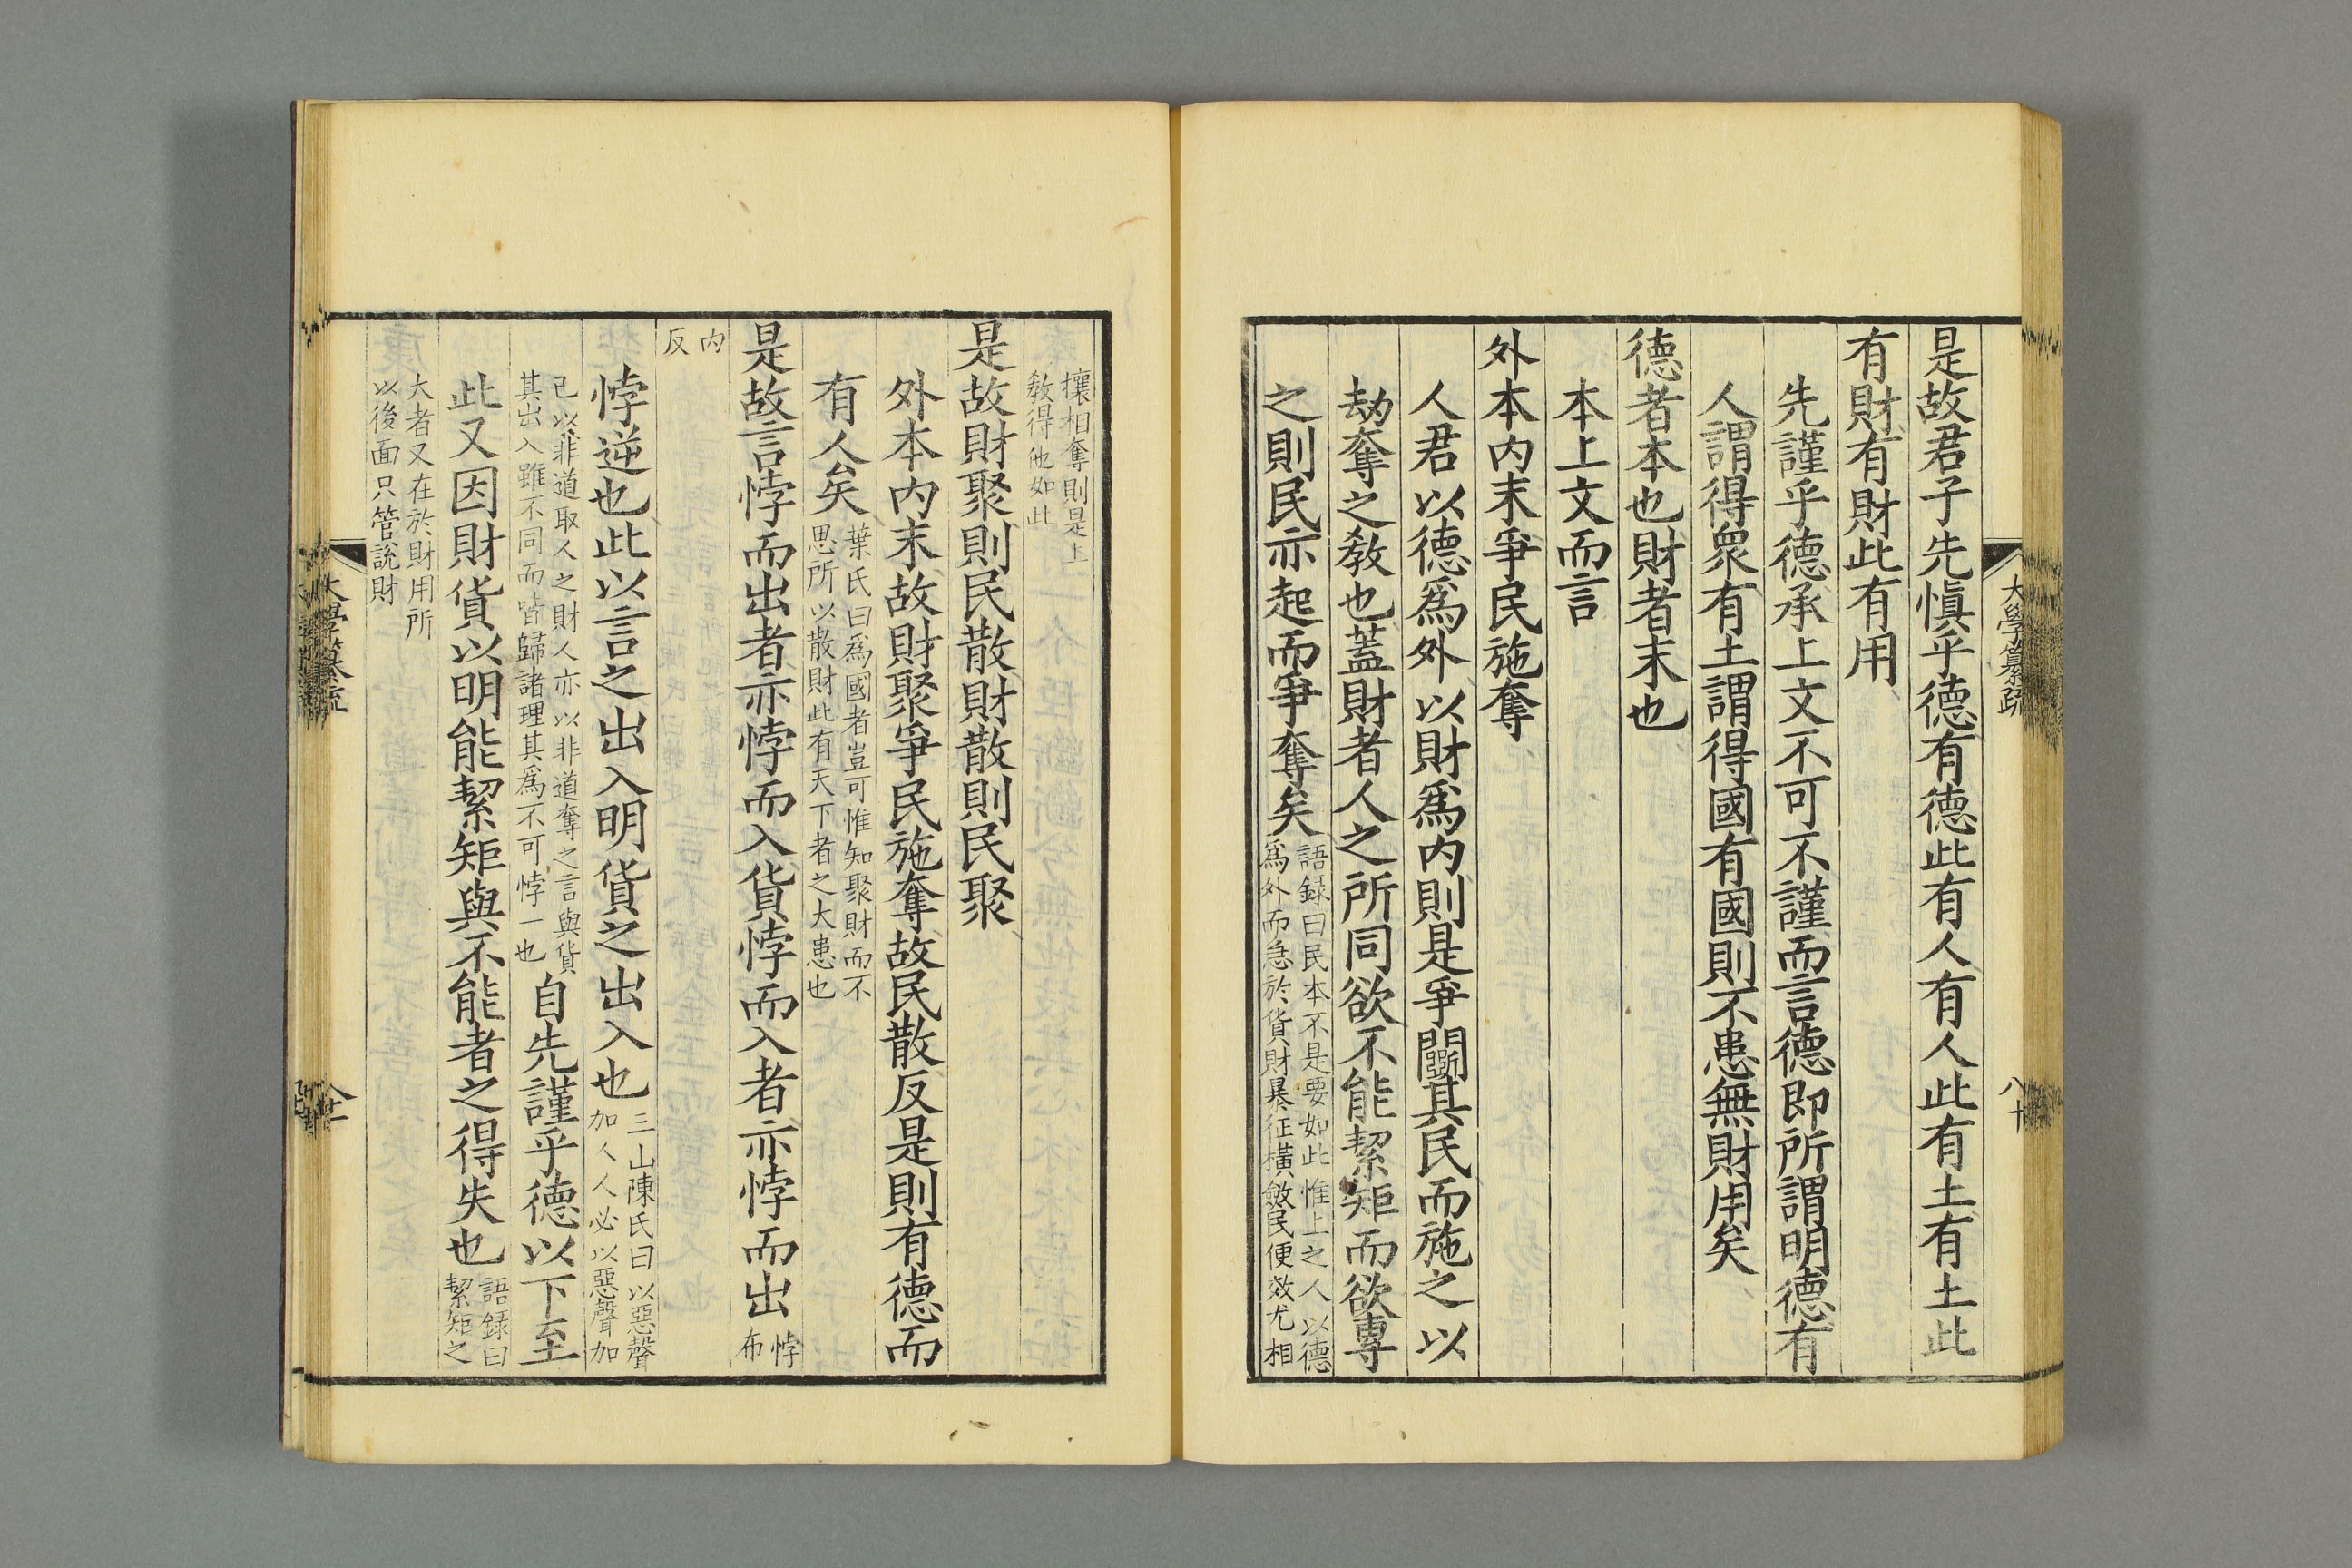 大學纂疏
八十
是故君子先愼乎德有德此有人有人此有土有土此
有財有財此有用
先謹乎德承上文不可不謹而言德即所謂明德有
人謂得衆有土謂得國有國則不患無財用矣
德者本也財者末也
本上文而言
外本內末爭民施奪
人君以德爲外以財爲內則是爭鬭其民而施之以
劫奪之敎也蓋財者人之所同欲不能絜矩而欲專
之則民亦起而爭奪矣
語録曰民本不是要如此惟上之人以德
爲外而急於貨財暴征橫斂民便效尤相
攘相奪則是上
敎得他如此
是故財聚則民散財散則民聚
外本內末故財聚爭民施奪故民散反是則有德而
有人矣
葉氏曰爲國者豈可惟知聚財而不
思所以散財此有天下者之大患也
是故言悖而出者亦悖而入貨悖而入者亦悖而出
悖
布
內
反
悖逆也此以言之出入明貨之出入也
三山陳氏曰以惡聲
加人人必以惡聲加
已以非道取人之財人亦以非道奪之言與貨
其出入雖不同而皆歸諸理其爲不可悖一也
自先謹乎德以下至
此又因財貨以明能絜矩與不能者之得失也
語録曰
絜矩之
大者又在於財用所
以後面只管說財
大學纂疏